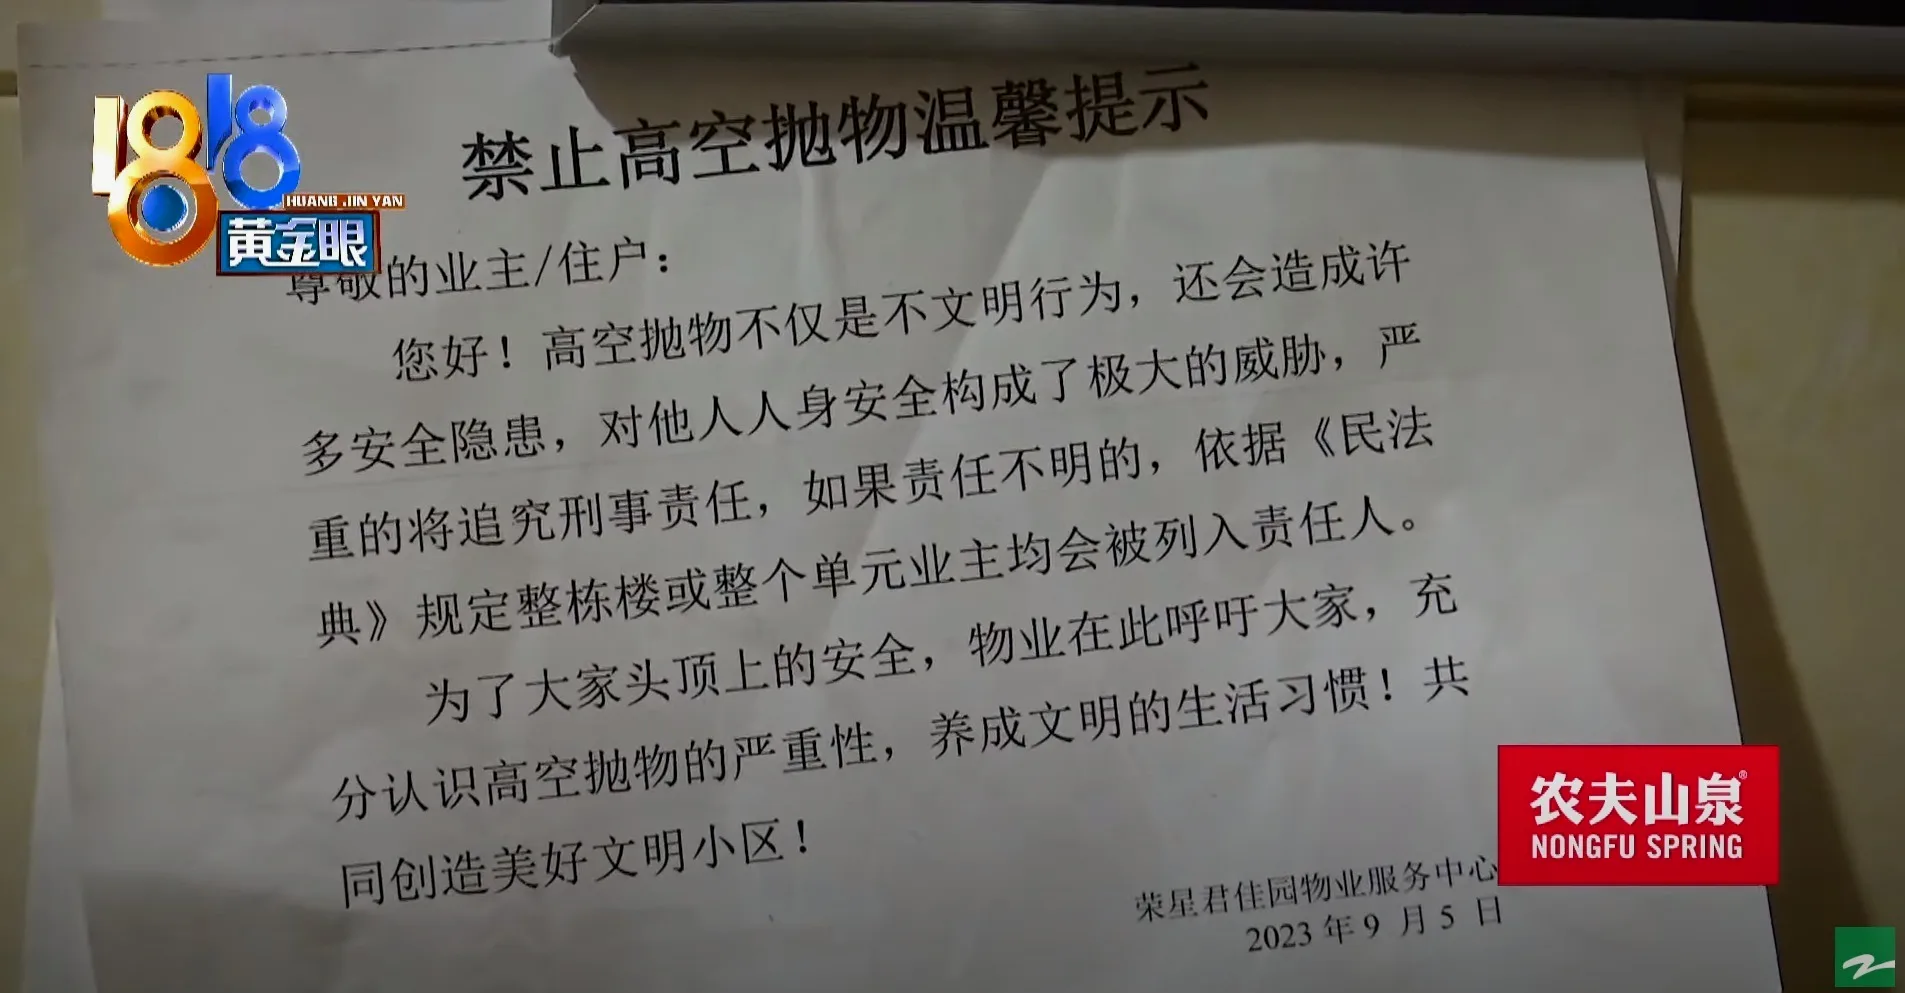 1818
HUANG JIN YAN
黄金眼
禁止高空抛物温馨提示
尊敬的业主/住户：
您好！高空抛物不仅是不文明行为，还会造成许
多安全隐患，对他人人身安全构成了极大的威胁，严
重的将追究刑事责任，如果责任不明的，依据《民法
典》规定整栋楼或整个单元业主均会被列入责任人。
为了大家头顶上的安全，物业在此呼吁大家，充
分认识高空抛物的严重性，养成文明的生活习惯！共
同创造美好文明小区！
荣星君佳园物业服务中心
2023年9月5日
农夫山泉®
NONGFU SPRING